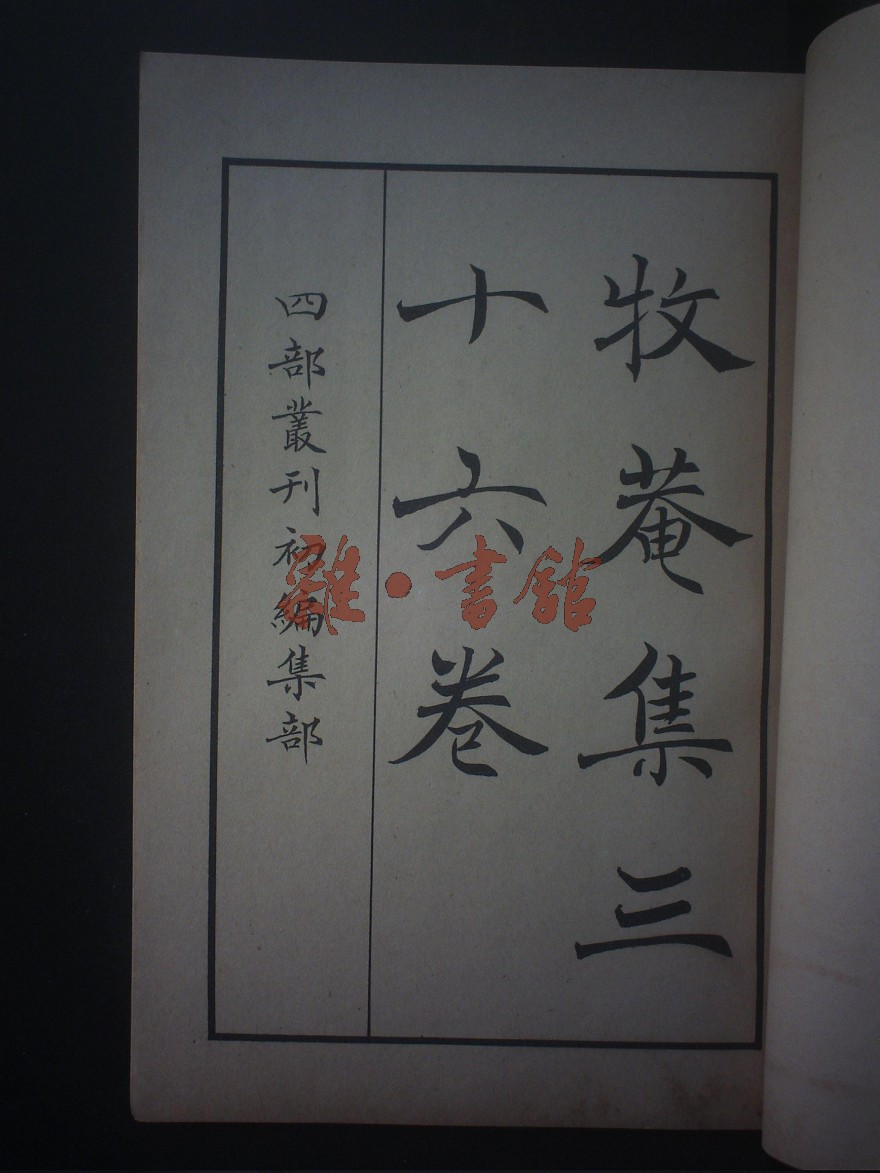 牧菴集三
十六卷
四部叢刊初編集部
雒·書館